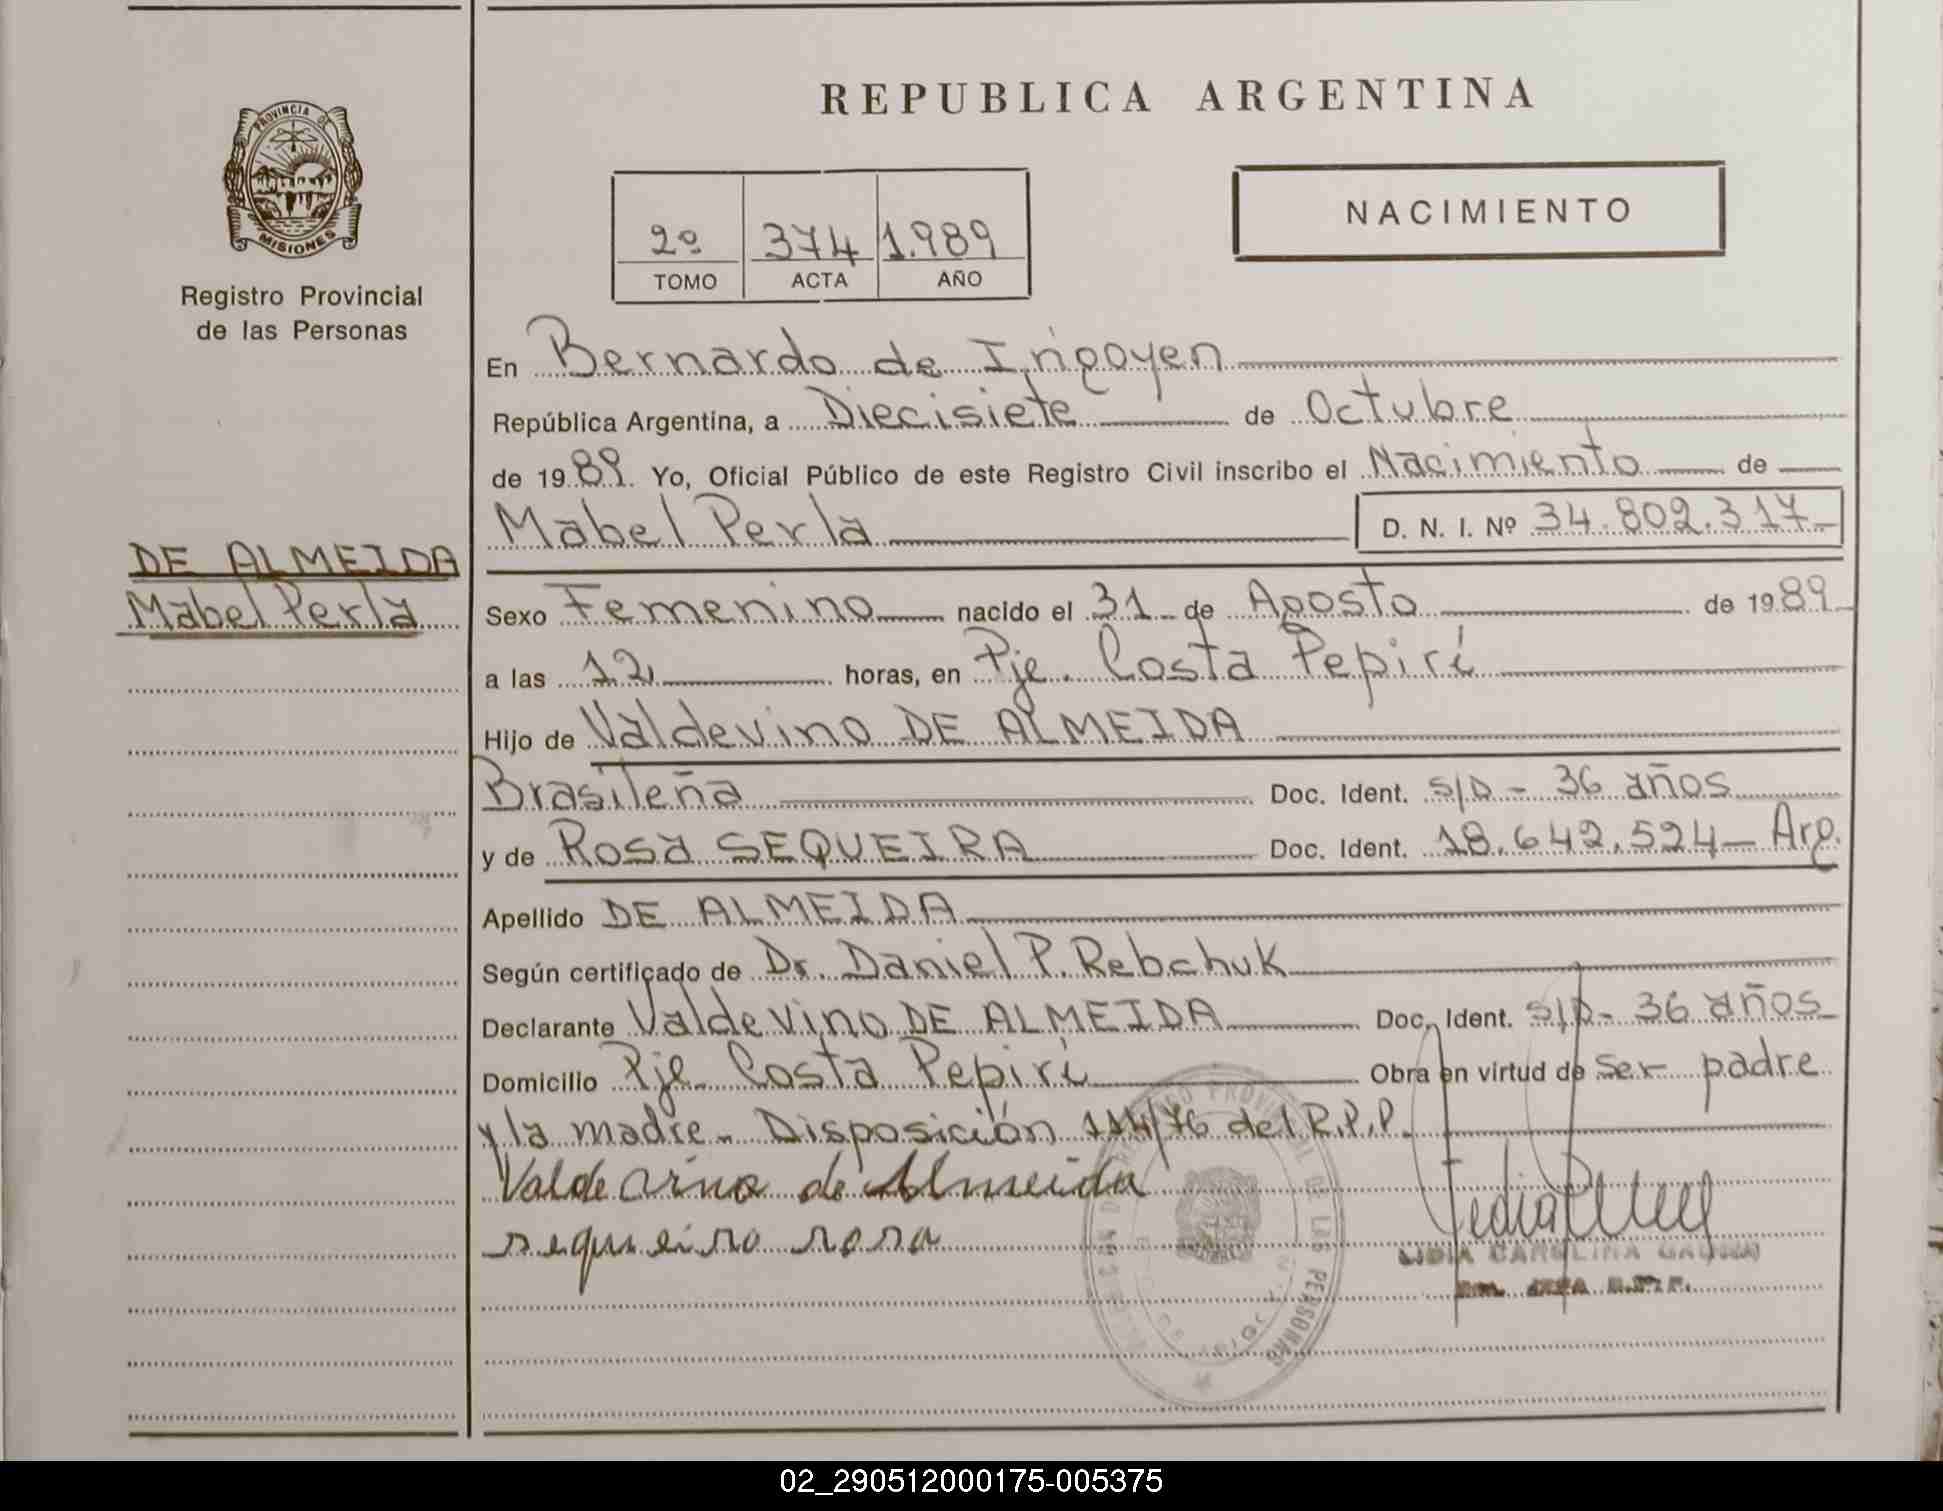 REPUBLICA ARGENTINA
PROVINCIA DE
MISIONES
Registro Provincial
de las Personas
2º 374 1.989
TOMO ACTA AÑO
NACIMIENTO
En Bernardo de Irigoyen
República Argentina, a Diecisiete de Octubre
de 1989. Yo, Oficial Público de este Registro Civil inscribo el Nacimiento de
Mabel Perla D. N. I. Nº 34.802.317
DE ALMEIDA
Mabel Perla
Sexo Femenino nacido el 31 de Agosto de 1989
a las 12 horas, en Pje. Costa Pepirí
Hijo de Valdevino DE ALMEIDA
Brasileña Doc. Ident. S/D - 36 años
y de Rosa SEQUEIRA Doc. Ident. 18.642.524 - Arg.
Apellido DE ALMEIDA
Según certificado de Dr. Daniel P. Rebchuk
Declarante Valdevino DE ALMEIDA Doc. Ident. S/D - 36 años
Domicilio Pje Costa Pepirí Obra en virtud de ser padre
y la madre. Disposición 114/76 del R.P.P.
Valdevino de Almeida
sequeira rosa
LIDIA CAROLINA
02_290512000175-005375